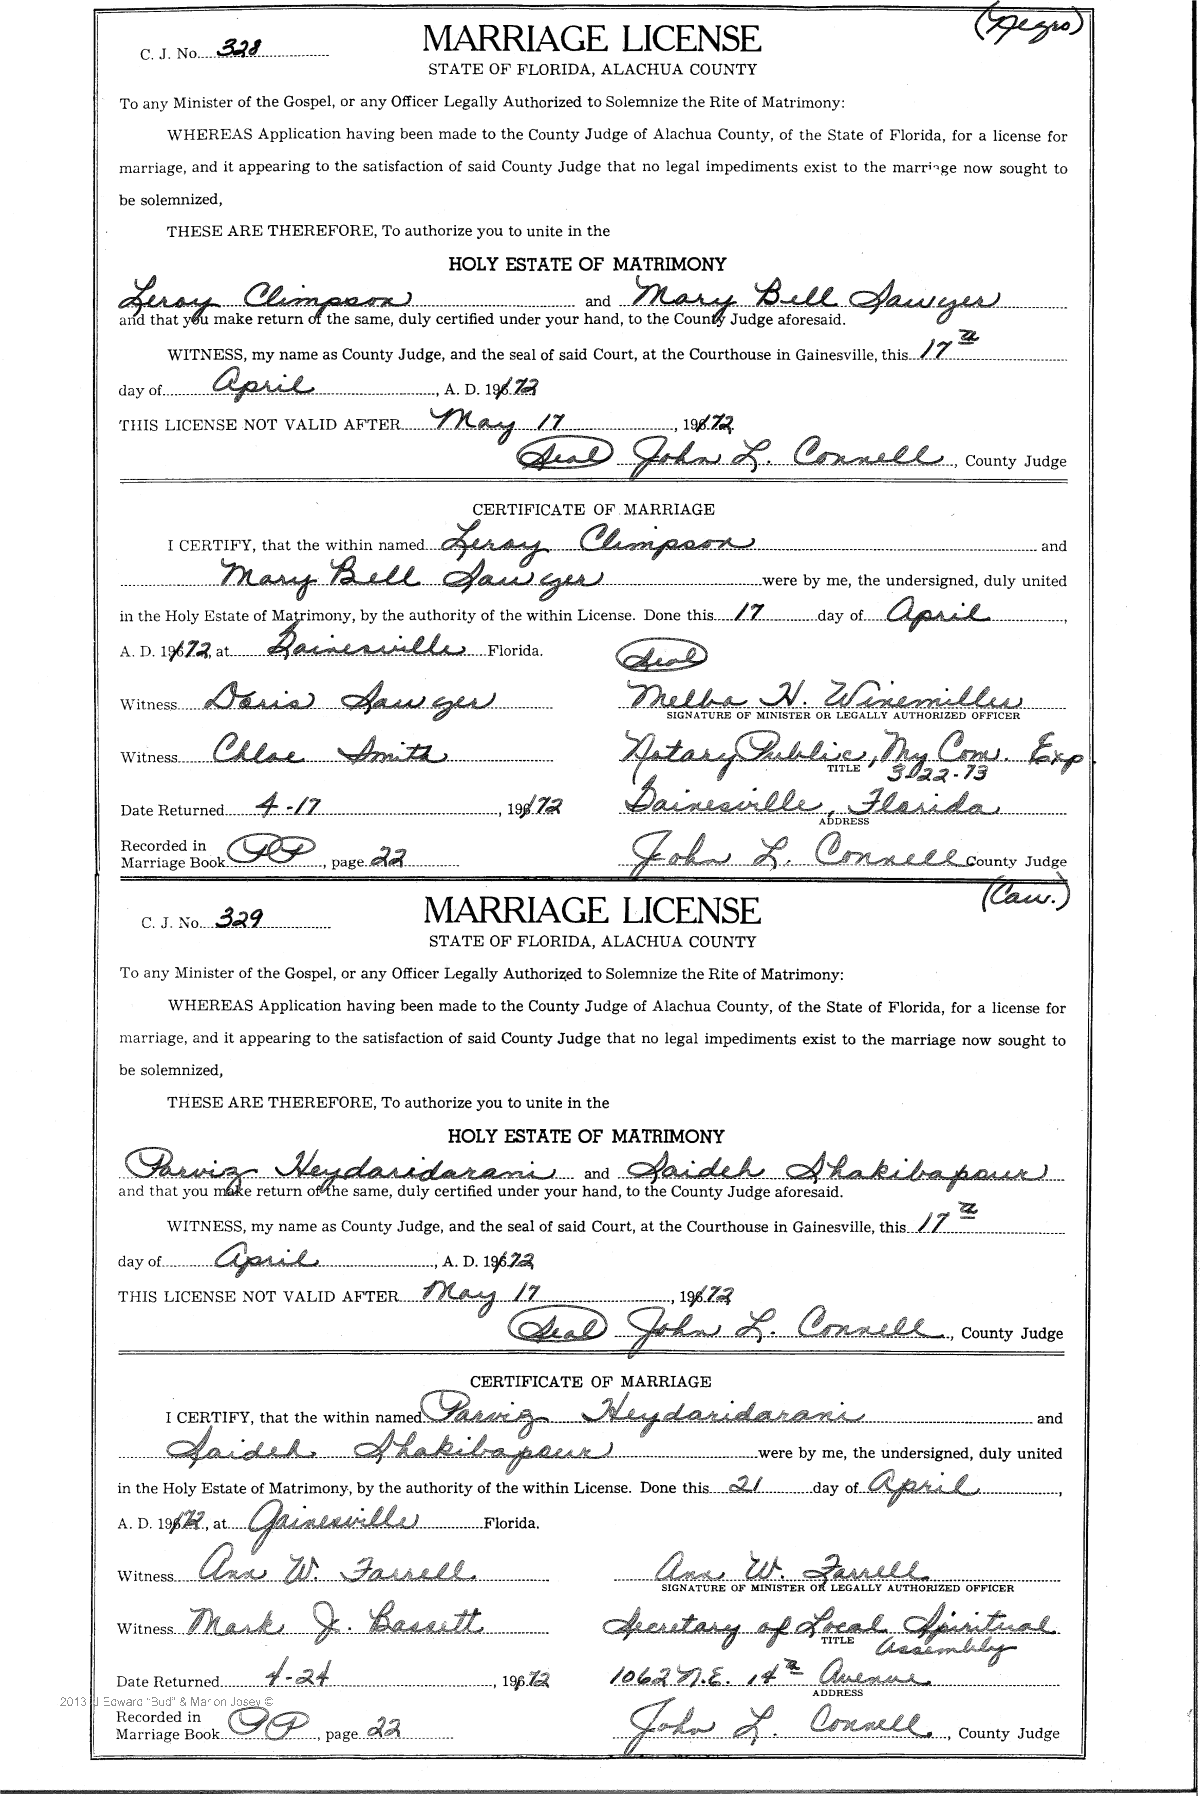 (Negro)
C. J. No. 328 MARRIAGE LICENSE
STATE OF FLORIDA, ALACHUA COUNTY
To any Minister of the Gospel, or any Officer Legally Authorized to Solemnize the Rite of Matrimony:
WHEREAS Application having been made to the County Judge of Alachua County, of the State of Florida, for a license for
marriage, and it appearing to the satisfaction of said County Judge that no legal impediments exist to the marriage now sought to
be solemnized,
THESE ARE THEREFORE, To authorize you to unite in the
HOLY ESTATE OF MATRIMONY
Leroy Climpson and Mary Bell Sawyer
and that you make return of the same, duly certified under your hand, to the County Judge aforesaid.
WITNESS, my name as County Judge, and the seal of said Court, at the Courthouse in Gainesville, this 17th
day of April, A. D. 1972
THIS LICENSE NOT VALID AFTER May 17, 1972
(Seal) John L. Connell, County Judge
CERTIFICATE OF MARRIAGE
I CERTIFY, that the within named Leroy Climpson and
Mary Bell Sawyer were by me, the undersigned, duly united
in the Holy Estate of Matrimony, by the authority of the within License. Done this 17 day of April,
A. D. 1972, at Gainesville Florida. (Seal)
Witness Doris Sawyer Melba H. Winemiller
SIGNATURE OF MINISTER OR LEGALLY AUTHORIZED OFFICER
Witness Chloe Smith Notary Public, My Com. Exp
TITLE 3-22-73
Date Returned 4-17, 1972 Gainesville, Florida
ADDRESS
Recorded in
Marriage Book PP, page 22 John L. Connell County Judge
(Cau.)
C. J. No. 329 MARRIAGE LICENSE
STATE OF FLORIDA, ALACHUA COUNTY
To any Minister of the Gospel, or any Officer Legally Authorized to Solemnize the Rite of Matrimony:
WHEREAS Application having been made to the County Judge of Alachua County, of the State of Florida, for a license for
marriage, and it appearing to the satisfaction of said County Judge that no legal impediments exist to the marriage now sought to
be solemnized,
THESE ARE THEREFORE, To authorize you to unite in the
HOLY ESTATE OF MATRIMONY
Parviz Heydaridarani and Saideh Shakibapour
and that you make return of the same, duly certified under your hand, to the County Judge aforesaid.
WITNESS, my name as County Judge, and the seal of said Court, at the Courthouse in Gainesville, this 17th
day of April, A. D. 1972
THIS LICENSE NOT VALID AFTER May 17, 1972
(Seal) John L. Connell, County Judge
CERTIFICATE OF MARRIAGE
I CERTIFY, that the within named Parviz Heydaridarani and
Saideh Shakibapour were by me, the undersigned, duly united
in the Holy Estate of Matrimony, by the authority of the within License. Done this 21 day of April,
A. D. 1972, at Gainesville Florida.
Witness Ann W. Farrell Ann W. Farrell
SIGNATURE OF MINISTER OR LEGALLY AUTHORIZED OFFICER
Witness Mark J. Bassett Secretary of Local Spiritual
TITLE Assembly
Date Returned 4-24, 1972 1062 N.E. 14th Avenue
ADDRESS
2013 J Edward "Bud" & Marion Josey ©
Recorded in
Marriage Book PP, page 22 John L. Connell, County Judge